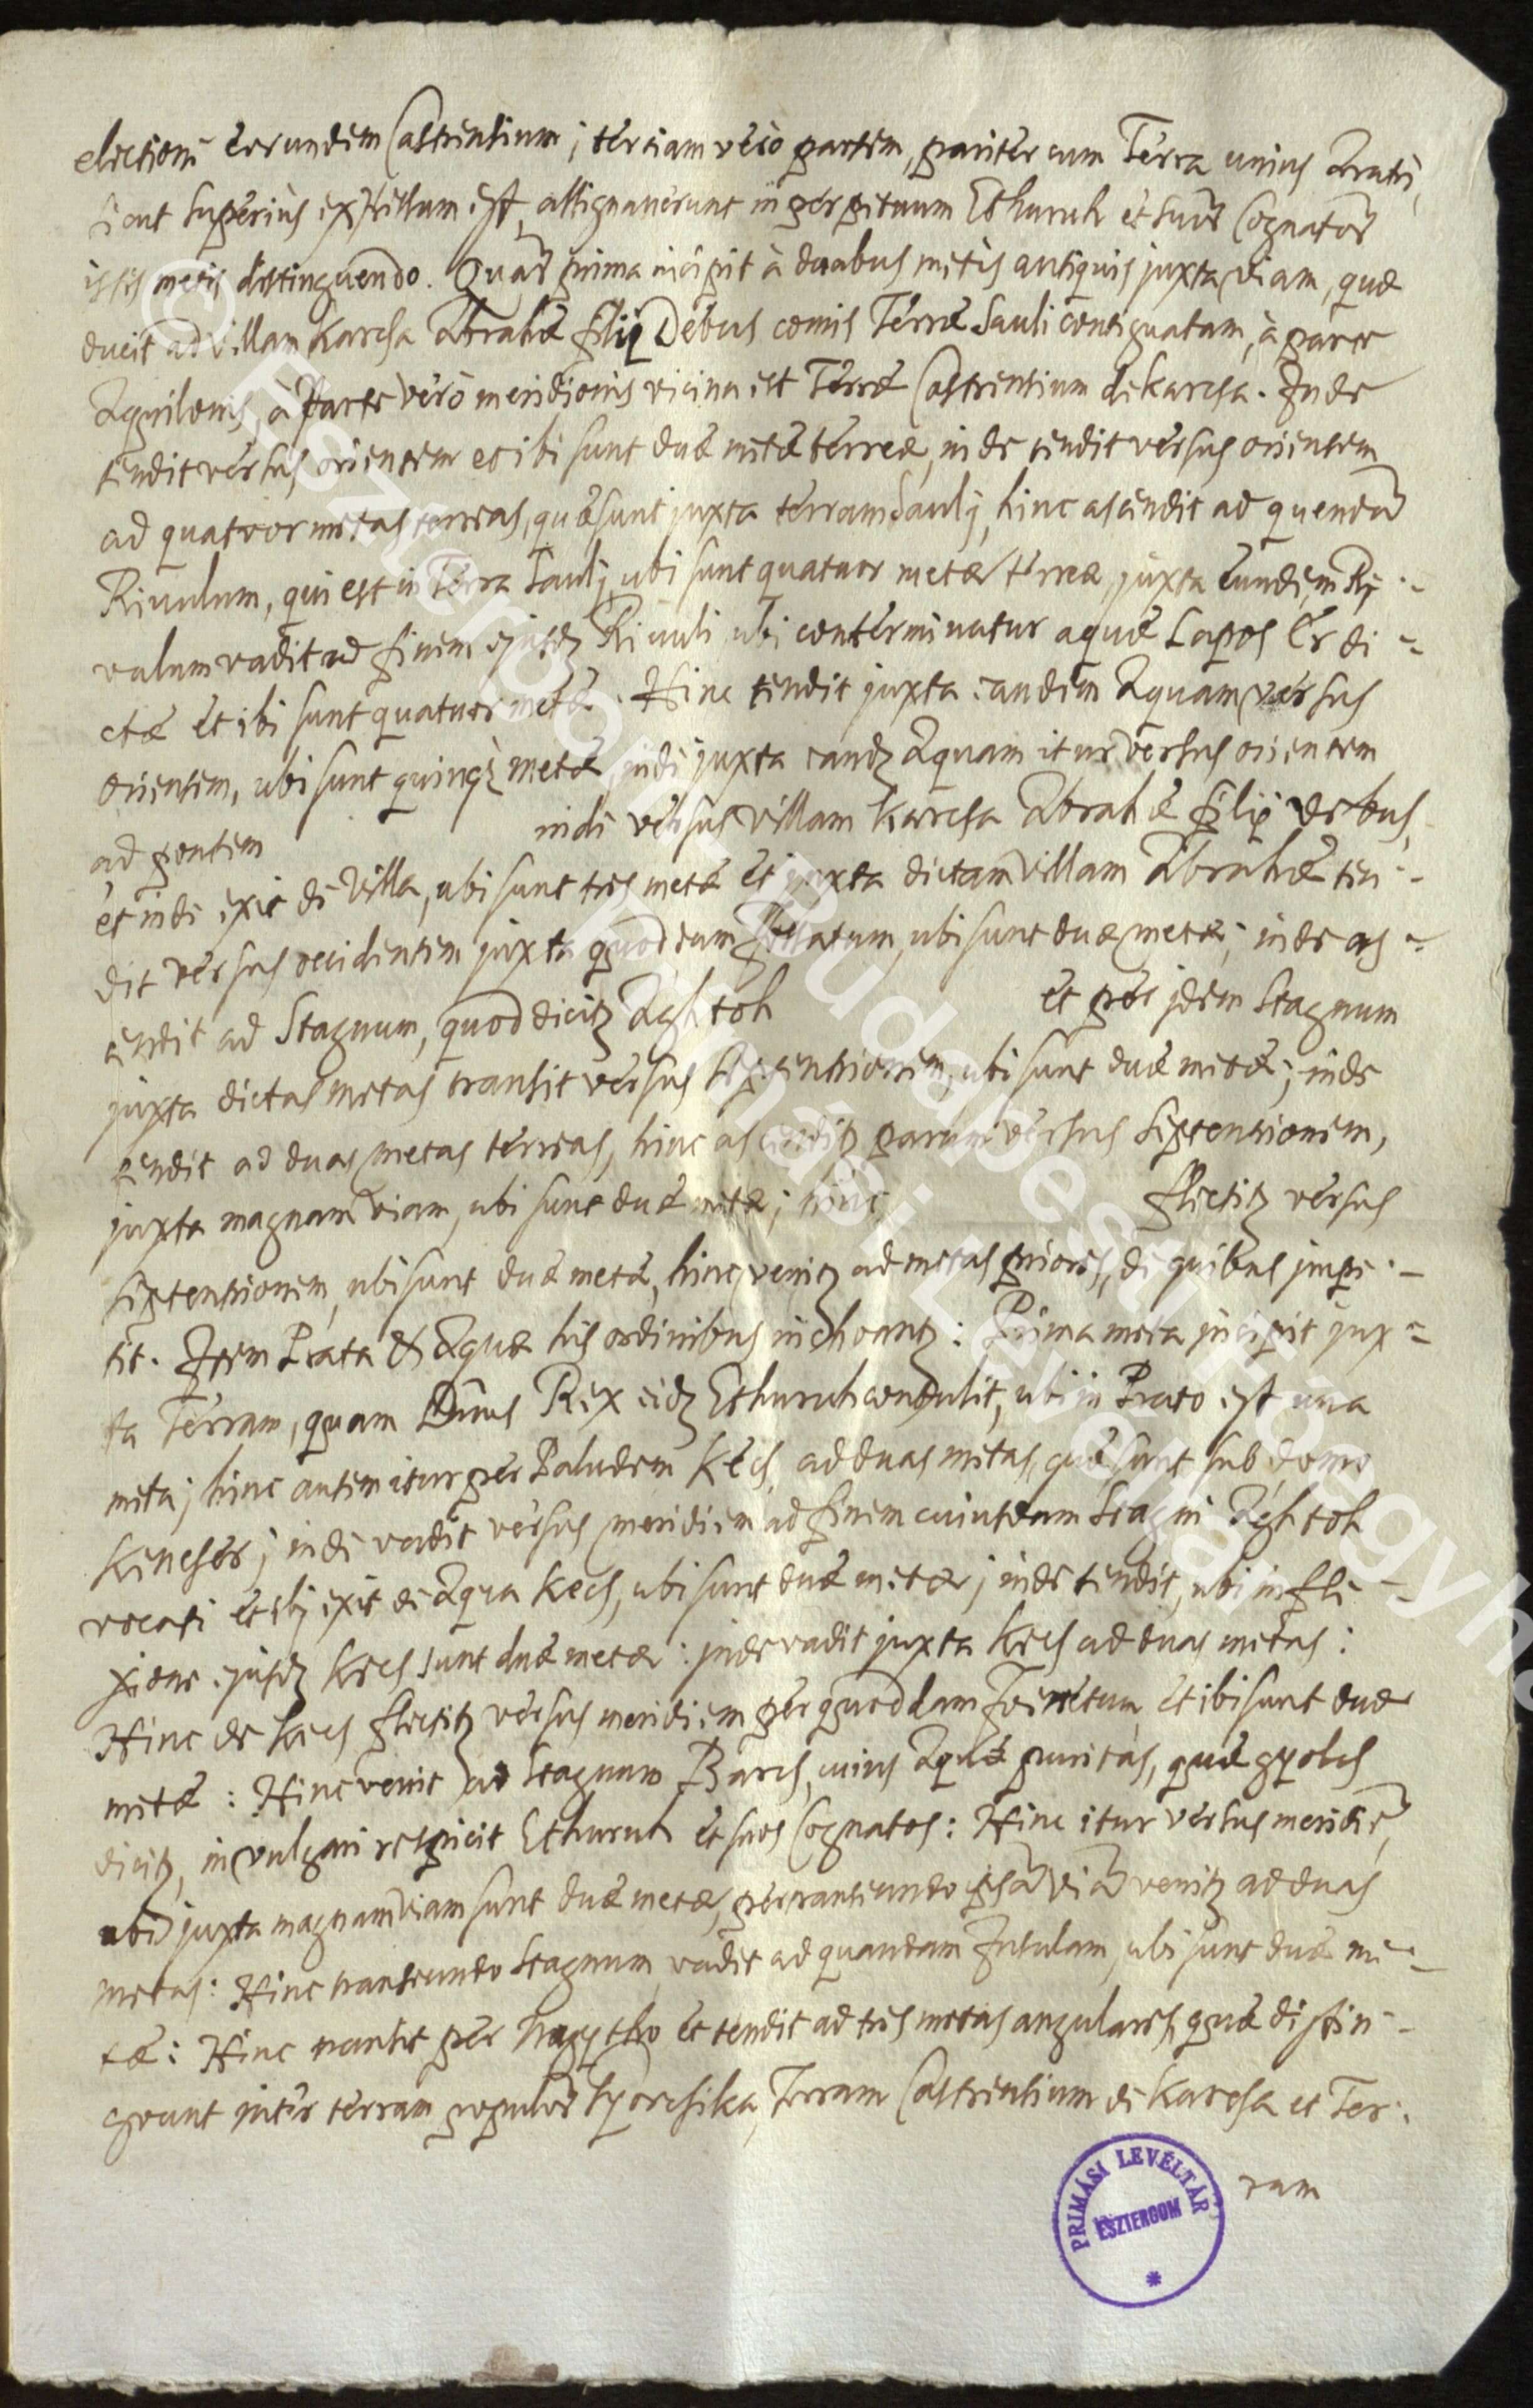 electioni eorundem Castrensium; terciam vero partem, pariter cum Terra unius Aratri,
sicut superius expressum est, assignaverunt in perpetuum Ethuruh et suor Cognator
istis metis distinguendo. Quar prima incipit à duabus metis antiquis juxta viam, quæ
ducit ad villam Karcsa Abrahæ filij Debus comis Terræ Sauli contiguatam, à parte
Aquilonis, à Parte vero meridionis vicina est Terræ Castrensium de Karcsa. Inde
tendit versus orientem et ibi sunt duæ metæ terreæ, inde tendit versus orientem
ad quatuor metas terreas, quæ sunt juxta terram Saulj, hinc ascendit ad quendã
Rivulum, qui est in Terra Saulj, ubi sunt quatuor metæ terreæ, juxta eundem Ri-
vulum vadit ad finem ejusdz Rivuli ubi conterminatur aquæ Lapos Er di-
ctæ et ibi sunt quatuor metæ. Hinc tendit juxta eandem Aquam versus
orientem, ubi sunt quinqz metæ, inde juxta eandz Aquam itur versus orientem
ad pontem inde versus villam Karcsa Abrahæ filij Debus,
et inde exit de Villa, ubi sunt tres metæ et juxta dictam villam Abrahæ ten-
dit versus occidentem juxta quoddam fossatum, ubi sunt duæ metæ; inde as-
cendit ad Stagnum, quod dicitz Aghtoh et per idem Stagnum
juxta dictas metas transit versus Septentrionem, ubi sunt duæ metæ; inde
tendit ad duas metas terreas, hinc ascenditz parum versus Septentrionem,
juxta magnam viam, ubi sunt duæ metæ; hinc flectitz versus
Septentrionem, ubi sunt duæ metæ, hinc venitz ad metas priores, de quibus incepe-
rit. Item Prata & Aquæ his ordinibus inchoantz: Prima meta incipit jux-
ta Terram, quam Dnus Rex eidz Ethuruh contulit, ubi in Prato est una
meta; hinc autem itur per Paludem Kecs, ad duas metas, quæ sunt sub domo
Keneser; inde vadit versus meridiem ad finem cuiusdam Stagni Aghtoh
vocati et ibj exit de Aqua Kecs, ubi sunt duæ metæ; inde tendit, ubi in fle-
xione ejusdz Kecs sunt duæ metæ: inde vadit juxta Kecs ad duas metas:
Hinc de Kecs flectitz versus meridiem per quoddam Foenetum, et ibi sunt duæ
metæ: Hinc venit ad Stagnum Barcs, cuius Aquæ puritas, quæ gyolcs
dicitz, in vulgari respicit Ethuruh et suos Cognatos: Hinc itur versus meridiẽ,
ubi juxta magnam viam sunt duæ metæ, pertranseundo ipsã viã venitz ad duas
metas: Hinc transeundo Stagnum, vadit ad quandam Insulam, ubi sunt duæ me-
tæ: Hinc transit per Nagytho et tendit ad tres metas angulares, quæ distin-
gvunt inter terram populor Sz, Terram Castrensium de Karcsa et Ter-
ram
PRIMÁSI LEVÉLTÁR
ESZTERGOM
© Esztergom-Budapesti Főegyhá
Prímási Levéltár